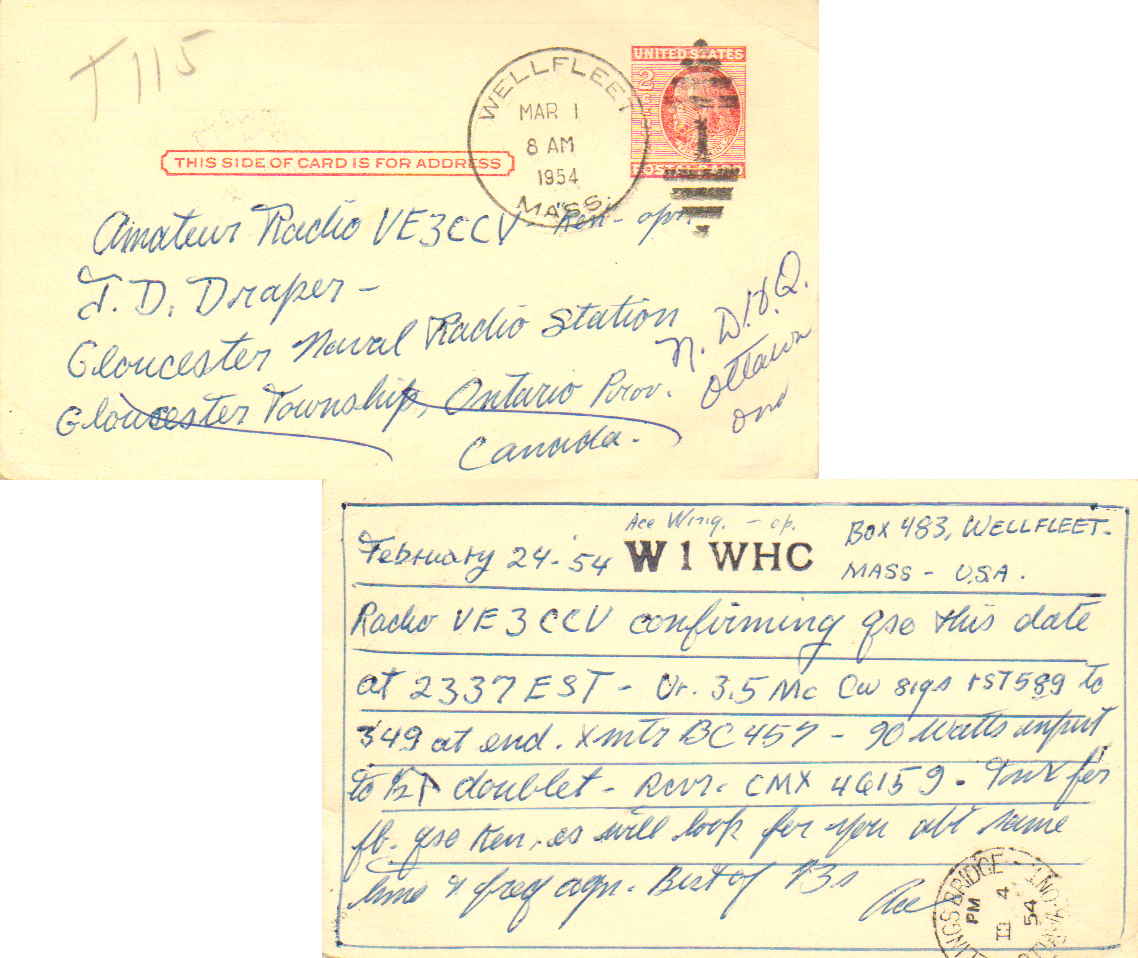 T 115
UNITED STATES
2
THIS SIDE OF CARD IS FOR ADDRESS
WELLFLEET
MAR 1
8 AM
1954
MASS.
Amateur Radio VE3CCV - Ken - opr
J. D. Draper -
Gloucester Naval Radio Station
Gloucester Township, Ontario Prov.
Canada.
N. D. H. Q.
Ottawa
Ont
Ace Wing. - op.
February 24 - '54 W1WHC BOX 483, WELLFLEET -
MASS - USA.
Radio VE3CCV confirming qso this date
at 2337 EST - Ur. 3.5 Mc CW sigs rst 589 to
349 at end. Xmtr BC457 - 90 watts input
to doublet - Rcvr. CMX 46159 - Tnx fer
fb. qso Ken. es will look for you abt same
time & freq agn. Best of 73s
Ace
BILLINGS BRIDGE
PM
4
54
OTTAWA-ONT.